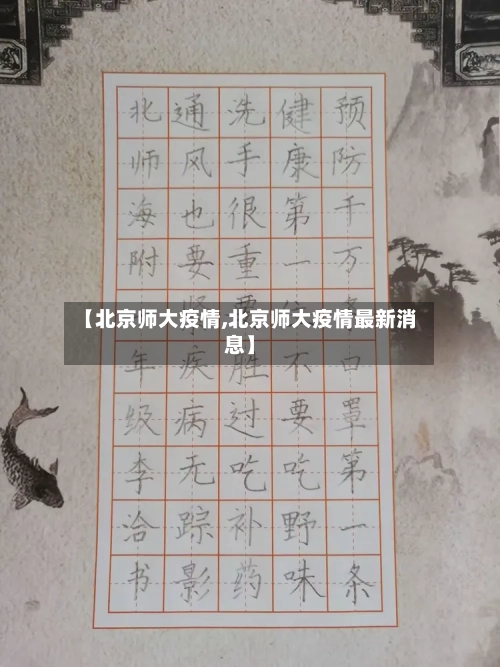 预防千万条口罩第一条
健康第一位不要吃野味
洗手很重要胜过吃补药
通风也要紧疾病无踪影
北师海附年级李洽书
【北京师大疫情,北京师大疫情最新消
息】